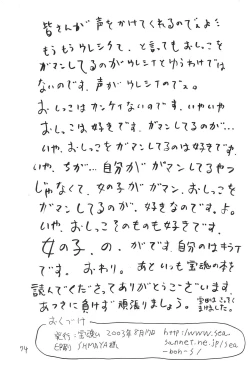 皆さんが声をかけてくれるのでぇよミ
もうもうウレシクて、と言ってもおしっこを
ガマンしてるのがウレシイとゆうわけでは
ないのです。声がウレシイのでぇ。
おしっこはカンケイないのです。いやいや
おしっこは好きです。ガマンしてるのが…
いや、おしっこをガマンしてるのは好きです。
いや、ちが…自分がガマンしてるやつ
じゃなくて、女の子がガマン、おしっこを
ガマンしてるのが、好きなのです。よ。
いや、おしっこそのものも好きです。
女の子、の、がです。自分のはキライ
です。おわり。あといつも宝魂の本を
読んでくださってありがとうございます。
あつさに負けず頑張りましょう。
おくづけ
発行:宝魂 2003年8月17日 http://www.sea.
印刷 SHIMAYA様 sannet.ne.jp/sea
-bon-s/
74